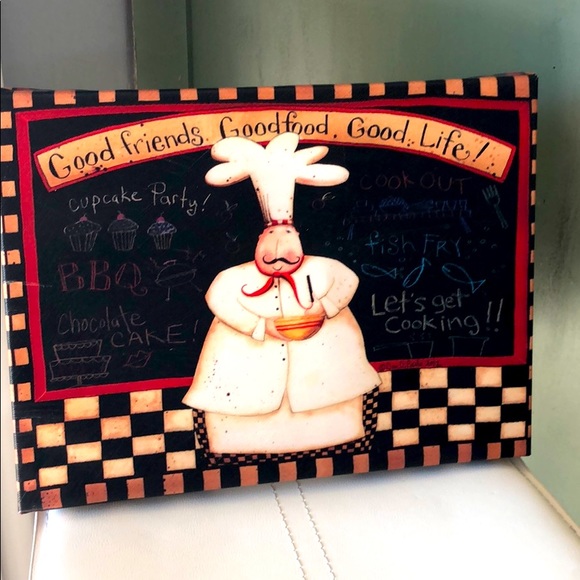 Good friends. Good food. Good Life!
cupcake Party!
BBQ
Chocolate
CAKE!
COOK OUT
fish FRY
Let's get
Cooking!!